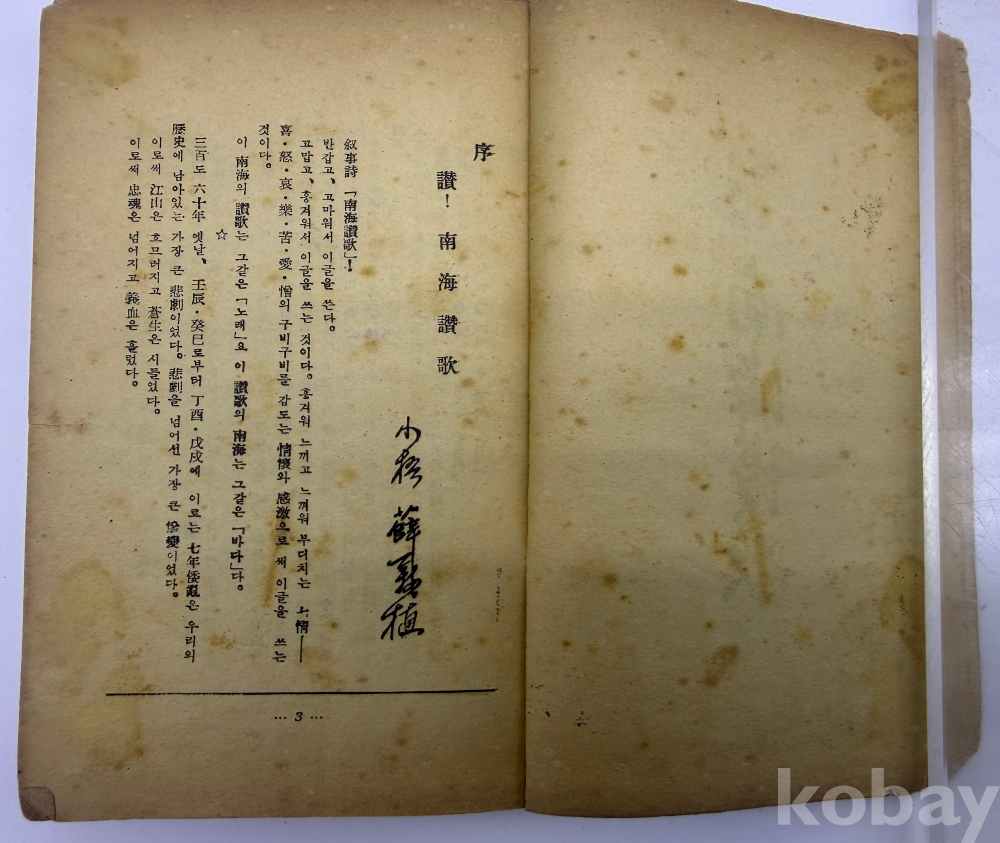 序
讚！南海讚歌
小梧 薛義植
敍事詩「南海讚歌」！
반갑고、고마워서 이글을 쓴다。
고맙고、흥겨워서 이글을 쓰는 것이다。흥겨워 느끼고 느껴워 부디치는 七情──
喜·怒·哀·樂·苦·愛·憎의 구비구비를 감도는 情懷와 感激으로 써 이글을 쓰는
것이다。
이 南海의 讚歌는 그같은「노래」요 이 讚歌의 南海는 그같은「바다」다。
☆
三百도 六十年 옛날、壬辰·癸巳로부터 丁酉·戊戌에 이르는 七年倭亂은 우리의
歷史에 남아있는 가장 큰 悲劇이었다。悲劇을 넘어선 가장 큰 慘變이었다。
이로써 江山은 흐므러지고 蒼生은 시들었다。
이로써 忠魂은 넘어지고 義血은 흘렀다。
… 3 …
kobay